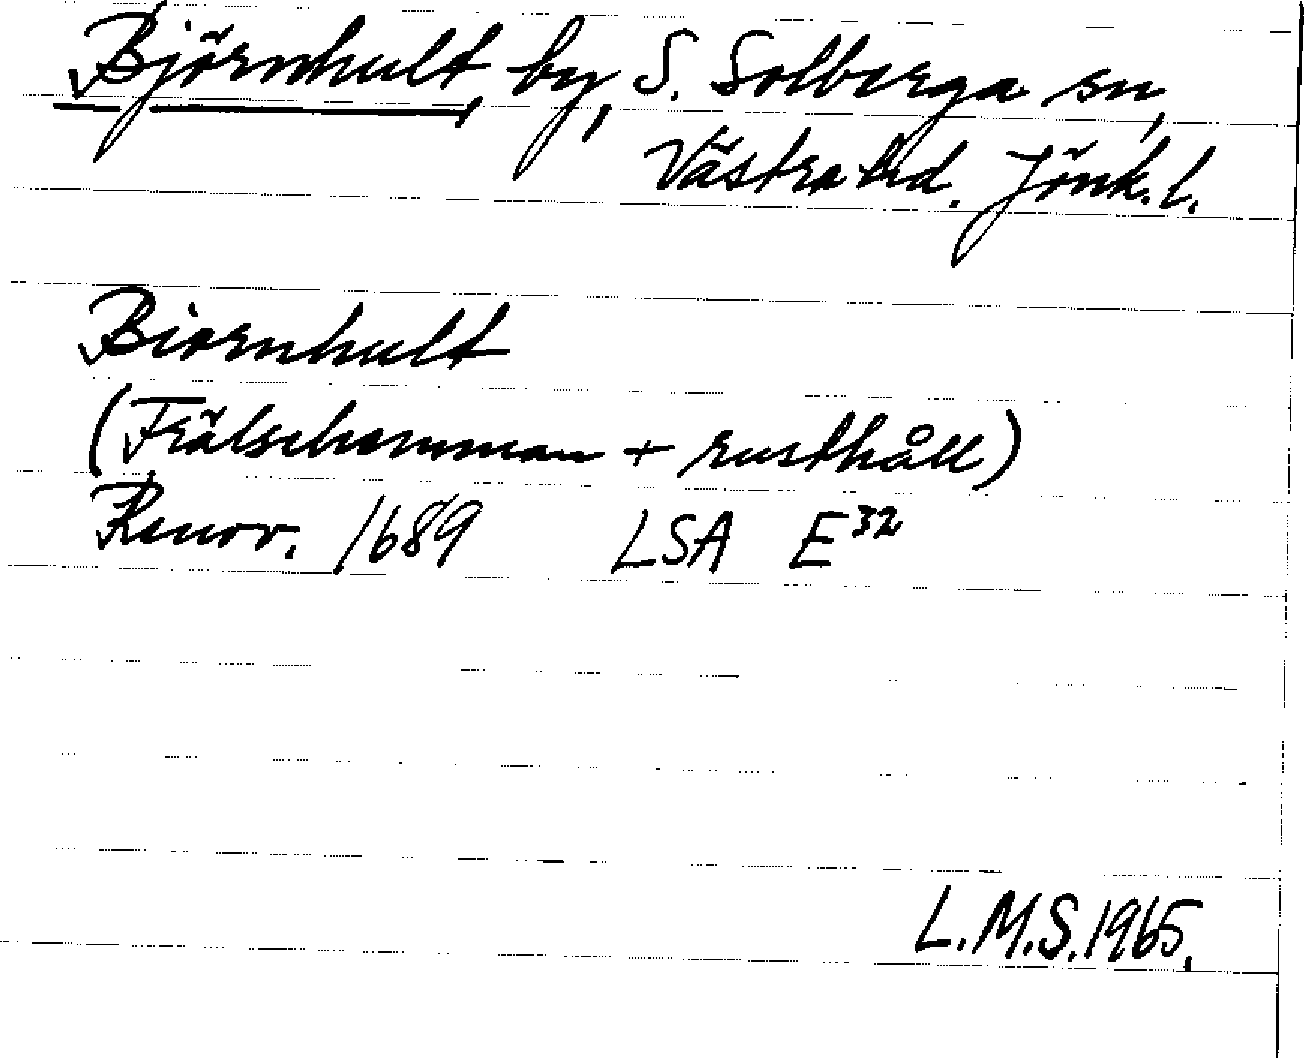 Björnhult, by, S. Solberga sn,
Västra hd. Jönk. l.
Biornhult
(Frälsehemman + rusthåll)
Renov. 1689 LSA E32
L.M.S. 1965.